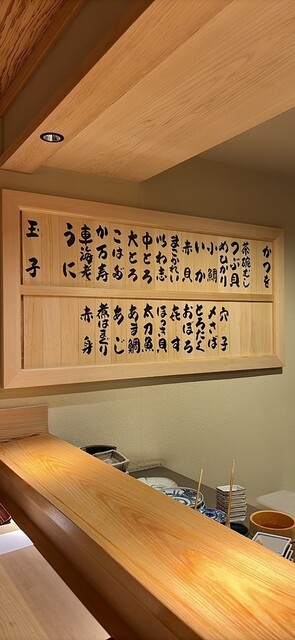 かつを
茶碗むし
つぶ貝
めひかり
小鯛
いか
赤貝
まこかれい
いわ志
中とろ
大とろ
こはだ
か万寿
車海老
うに
玉子
穴子
〆さば
とろたく
おぼろ
㐂す
ほっき貝
太刀魚
あま鯛
あじ
煮はまぐり
赤身